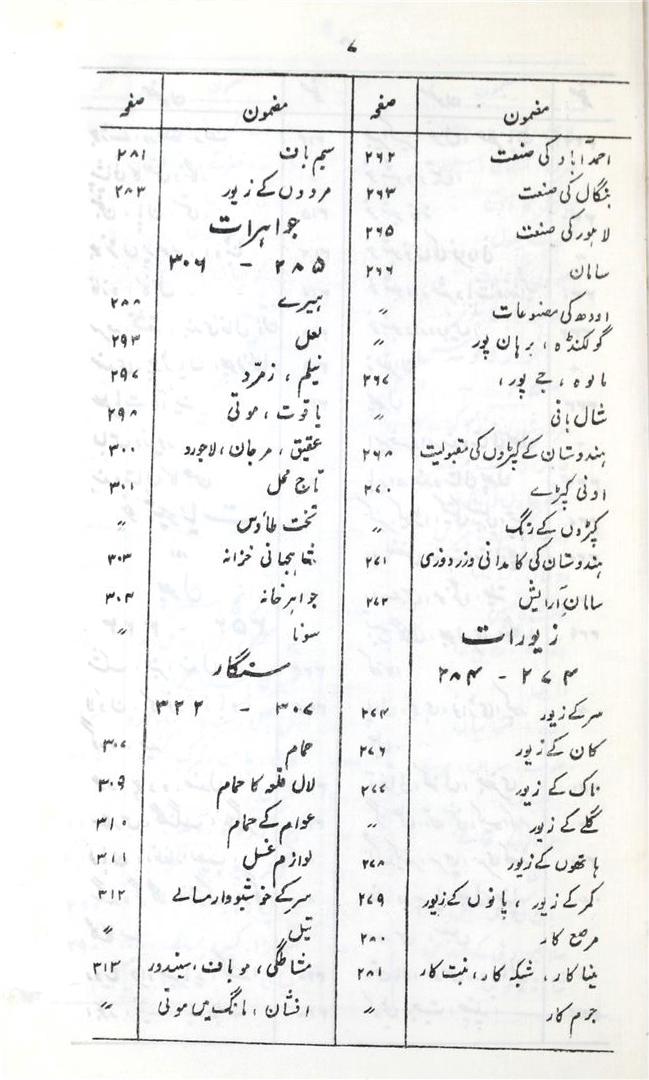 ۷
مضمون	صفحہ
احمد آباد کی صنعت	۲۶۲
بنگال کی صنعت	۲۶۳
لاہور کی صنعت	۲۶۵
سامان	۲۶۶
اودھ کی مصنوعات	〃
گولکنڈہ ، برہان پور	〃
مالوہ ، جے پور ،	۲۶۷
شال بافی	〃
ہندوستان کے کپڑوں کی مقبولیت	۲۶۸
اونی کپڑے	۲۷۰
کپڑوں کے رنگ	〃
ہندوستان کی کامدانی و زردوزی	۲۷۱
سامانِ آرایش	۲۷۲
زیورات
۲۷۴ - ۲۸۴
سر کے زیور	۲۷۴
کان کے زیور	۲۷۶
ناک کے زیور	۲۷۷
گلے کے زیور	〃
ہاتھوں کے زیور	۲۷۸
کمر کے زیور ، پانوں کے زیور	۲۷۹
مرصع کار	۲۸۰
مینا کار ، شبکہ کار ، نبت کار	۲۸۱
جرم کار	〃
مضمون	صفحہ
سیم باف	۲۸۱
مردوں کے زیور	۲۸۳
جواہرات
۲۸۵ - ۳۰۶
ہیرے	۲۸۸
لعل	۲۹۳
نیلم ، زمرّد	۲۹۷
یاقوت ، موتی	۲۹۸
عقیق ، مرجان ، لاجورد	۳۰۰
تاج محل	۳۰۱
تخت طاؤس	〃
شاہجہانی خزانہ	۳۰۳
جواہر خانہ	۳۰۴
سونا	〃
سنگار
۳۰۷ - ۳۲۲
حمام	۳۰۷
لال قلعہ کا حمام	۳۰۹
عوام کے حمام	۳۱۰
لوازم غسل	۳۱۱
سر کے خوشبودار مسالے	۳۱۲
تیل	〃
مشاطگی ، موباف ، سیندور	۳۱۳
افشان ، مانگ میں موتی	〃